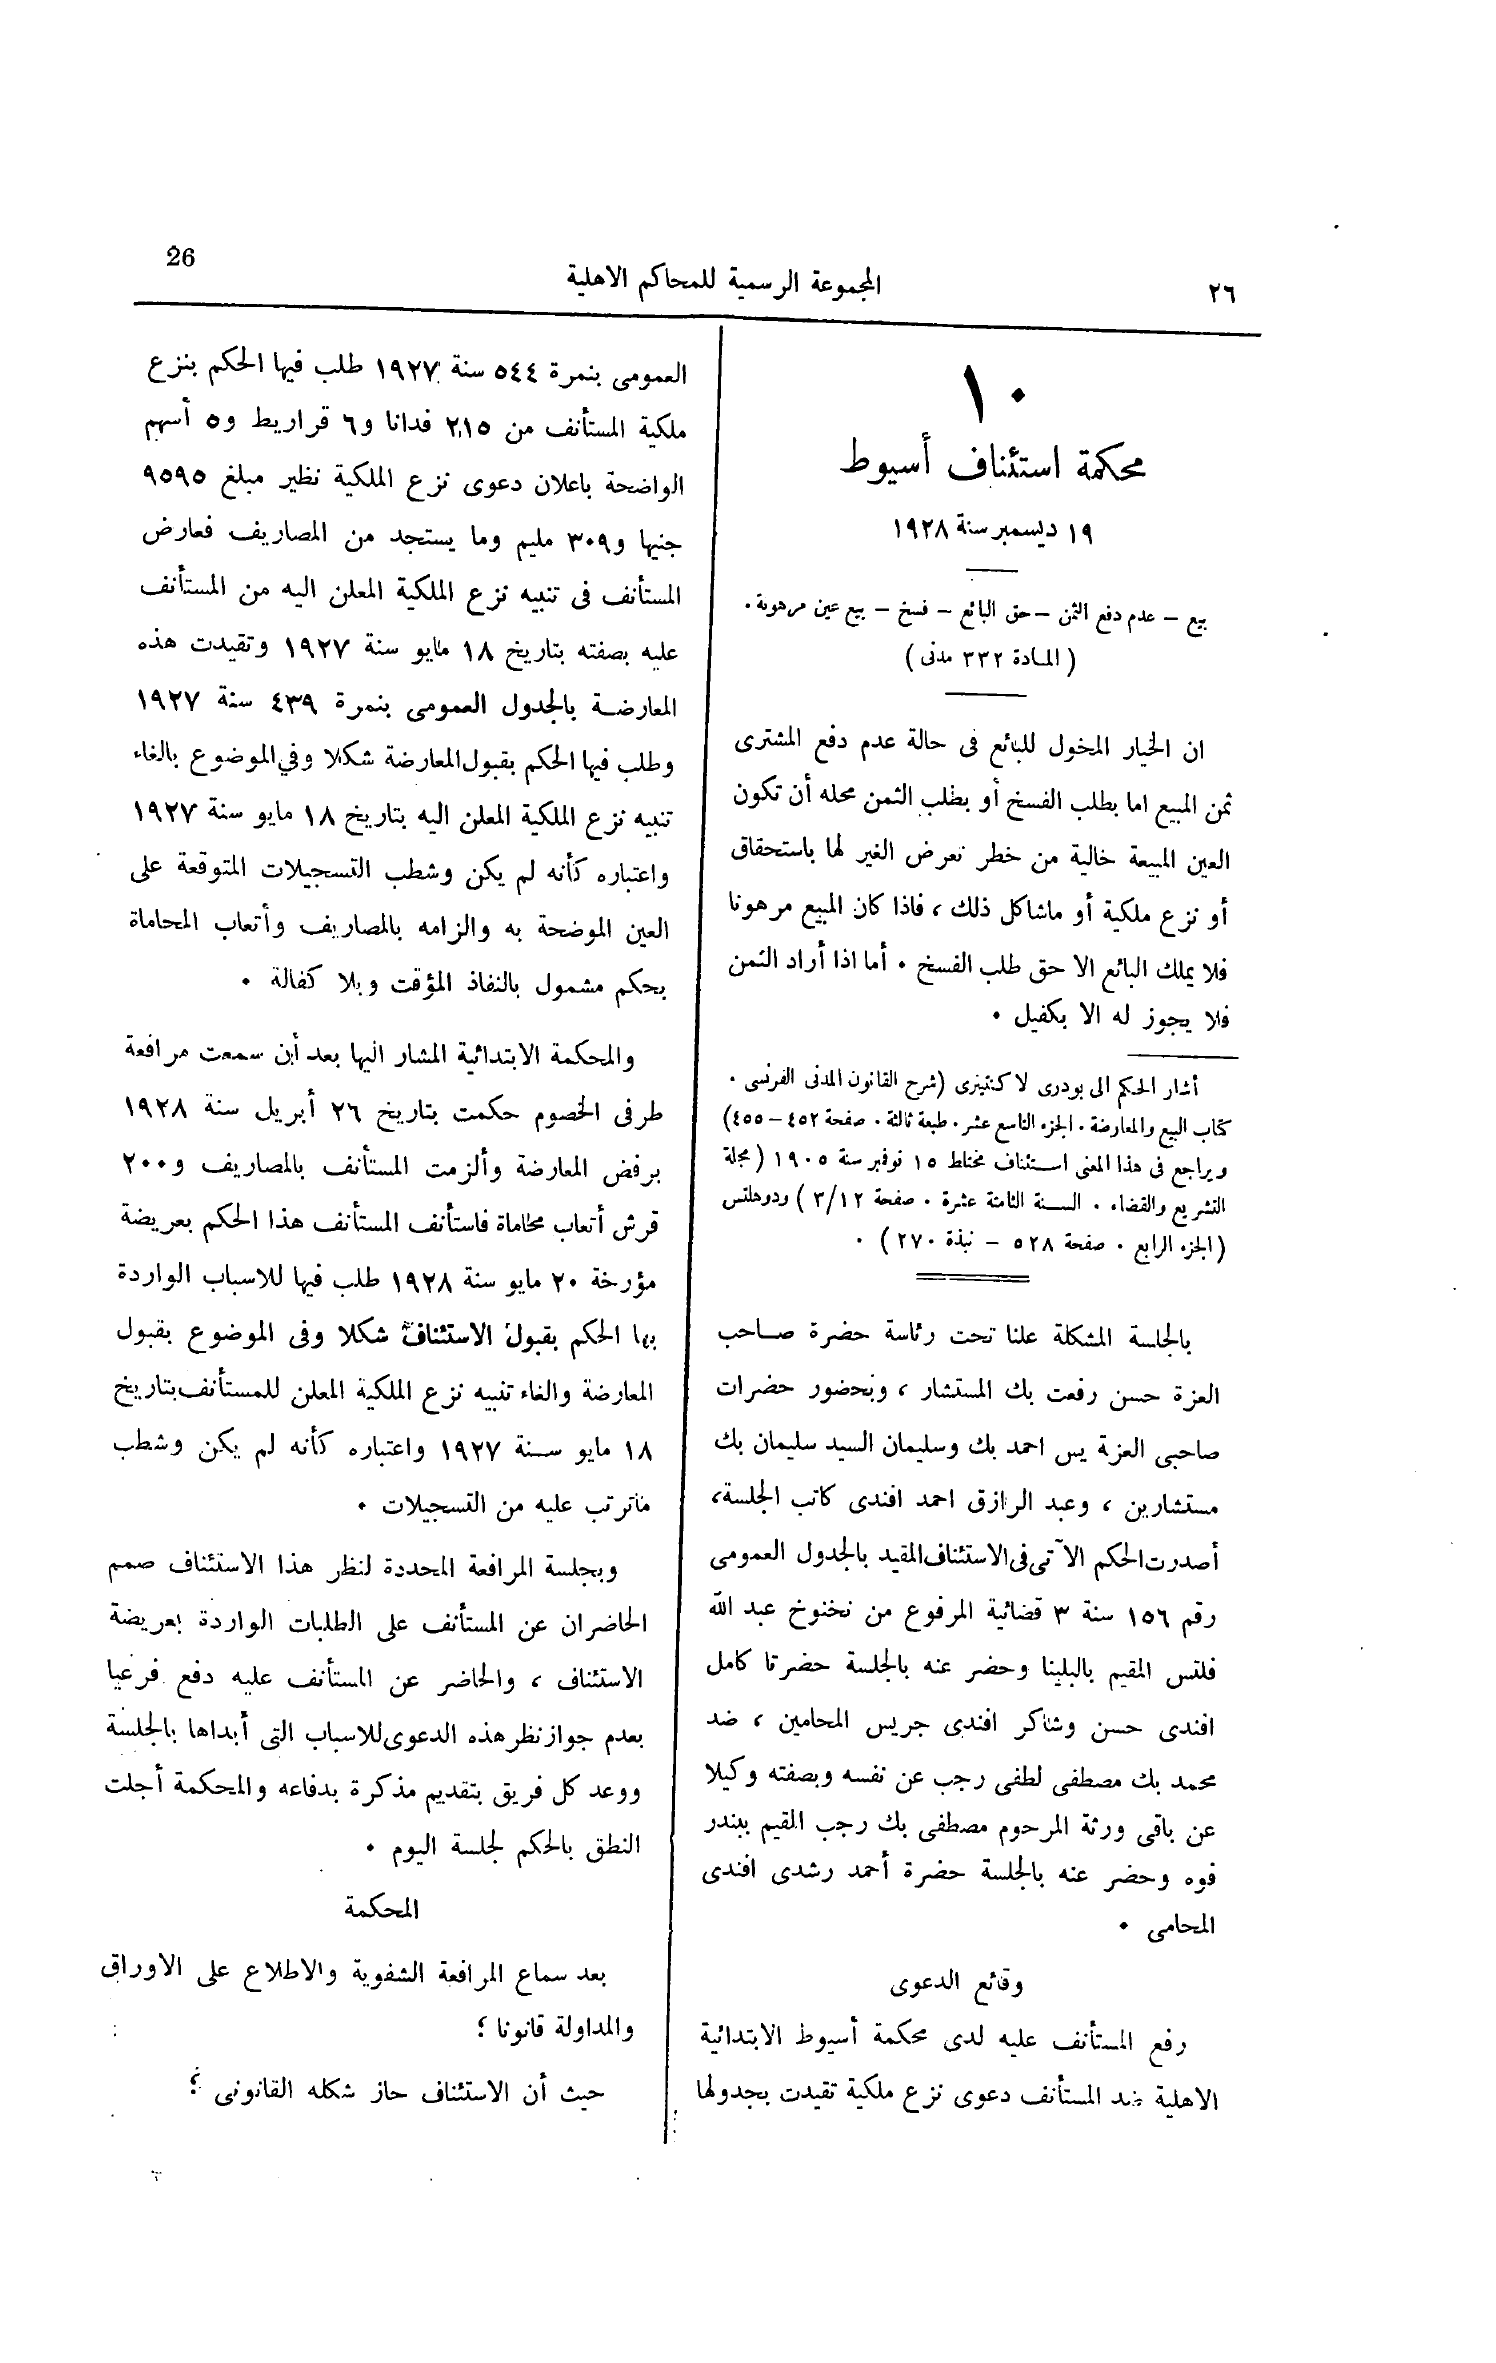 ٢٦
المجموعة الرسمية للمحاكم الاهلية
26
١٠
محكمة استئناف أسيوط
١٩ ديسمبر سنة ١٩٢٨
بيع – عدم دفع الثمن – حق البائع – فسخ – بيع عين مرهونة.
( المادة ٣٣٢ مدنى )
ان الخيار المخول للبائع فى حالة عدم دفع المشترى
ثمن المبيع اما بطلب الفسخ أو بطلب الثمن محله أن تكون
العين المبيعة خالية من خطر تعرض الغير لها باستحقاق
أو نزع ملكية أو ماشاكل ذلك ، فاذا كان المبيع مرهونا
فلا يملك البائع الا حق طلب الفسخ . أما اذا أراد الثمن
فلا يجوز له الا بكفيل .
أشار الحكم الى بودرى لا كنتينرى (شرح القانون المدنى الفرنسى .
كتاب البيع والمعارضة . الجزء التاسع عشر . طبعة ثالثة . صفحة ٤٥٢ – ٤٥٥)
ويراجع فى هذا المعنى استئناف مختلط ١٥ نوفمبر سنة ١٩٠٥ (مجلة
التشريع والقضاء . السنة الثامنة عشرة . صفحة ٣/١٢ ) ودوهلتس
(الجزء الرابع . صفحة ٥٢٨ – نبذة ٢٧٠ ) .
بالجلسة المشكلة علنا تحت رئاسة حضرة صاحب
العزة حسن رفعت بك المستشار ، وبحضور حضرات
صاحبى العزة يس احمد بك وسليمان السيد سليمان بك
مستشارين ، وعبد الرازق احمد افندى كاتب الجلسة،
أصدرت الحكم الآتى فى الاستئناف المقيد بالجدول العمومى
رقم ١٥٦ سنة ٣ قضائية المرفوع من نخنوخ عبد الله
فلتس المقيم بالبلينا وحضر عنه بالجلسة حضرتا كامل
افندى حسن وشاكر افندى جريس المحامين ، ضد
محمد بك مصطفى لطفى رجب عن نفسه وبصفته وكيلا
عن باقى ورثة المرحوم مصطفى بك رجب المقيم ببندر
فوه وحضر عنه بالجلسة حضرة أحمد رشدى افندى
المحامى .
وقائع الدعوى
رفع المستأنف عليه لدى محكمة أسيوط الابتدائية
الاهلية ضد المستأنف دعوى نزع ملكية تقيدت بجدولها
العمومى بنمرة ٥٤٤ سنة ١٩٢٧ طلب فيها الحكم بنزع
ملكية المستأنف من ٢١٥ فدانا و٦ قراريط و٥ أسهم
الواضحة باعلان دعوى نزع الملكية نظير مبلغ ٩٥٩٥
جنيها و٣٠٩ مليم وما يستجد من المصاريف فعارض
المستأنف فى تنبيه نزع الملكية المعلن اليه من المستأنف
عليه بصفته بتاريخ ١٨ مايو سنة ١٩٢٧ وتقيدت هذه
المعارضة بالجدول العمومى بنمرة ٤٣٩ سنة ١٩٢٧
وطلب فيها الحكم بقبول المعارضة شكلا وفي الموضوع بالغاء
تنبيه نزع الملكية المعلن اليه بتاريخ ١٨ مايو سنة ١٩٢٧
واعتباره كأنه لم يكن وشطب التسجيلات المتوقعة على
العين الموضحة به والزامه بالمصاريف وأتعاب المحاماة
بحكم مشمول بالنفاذ المؤقت وبلا كفالة .
والمحكمة الابتدائية المشار اليها بعد أن سمعت مرافعة
طرفى الخصوم حكمت بتاريخ ٢٦ أبريل سنة ١٩٢٨
برفض المعارضة وألزمت المستأنف بالمصاريف و٢٠٠
قرش أتعاب محاماة فاستأنف المستأنف هذا الحكم بعريضة
مؤرخة ٢٠ مايو سنة ١٩٢٨ طلب فيها للاسباب الواردة
بها الحكم بقبول الاستئناف شكلا وفى الموضوع بقبول
المعارضة والغاء تنبيه نزع الملكية المعلن للمستأنف بتاريخ
١٨ مايو سنة ١٩٢٧ واعتباره كأنه لم يكن وشطب
ماترتب عليه من التسجيلات .
وبجلسة المرافعة المحددة لنظر هذا الاستئناف صمم
الحاضران عن المستأنف على الطلبات الواردة بعريضة
الاستئناف ، والحاضر عن المستأنف عليه دفع فرعيا
بعدم جواز نظر هذه الدعوى للاسباب التى أبداها بالجلسة
ووعد كل فريق بتقديم مذكرة بدفاعه والمحكمة أجلت
النطق بالحكم لجلسة اليوم .
المحكمة
بعد سماع المرافعة الشفوية والاطلاع على الاوراق
والمداولة قانونا ؛
حيث أن الاستئناف حاز شكله القانونى ؛